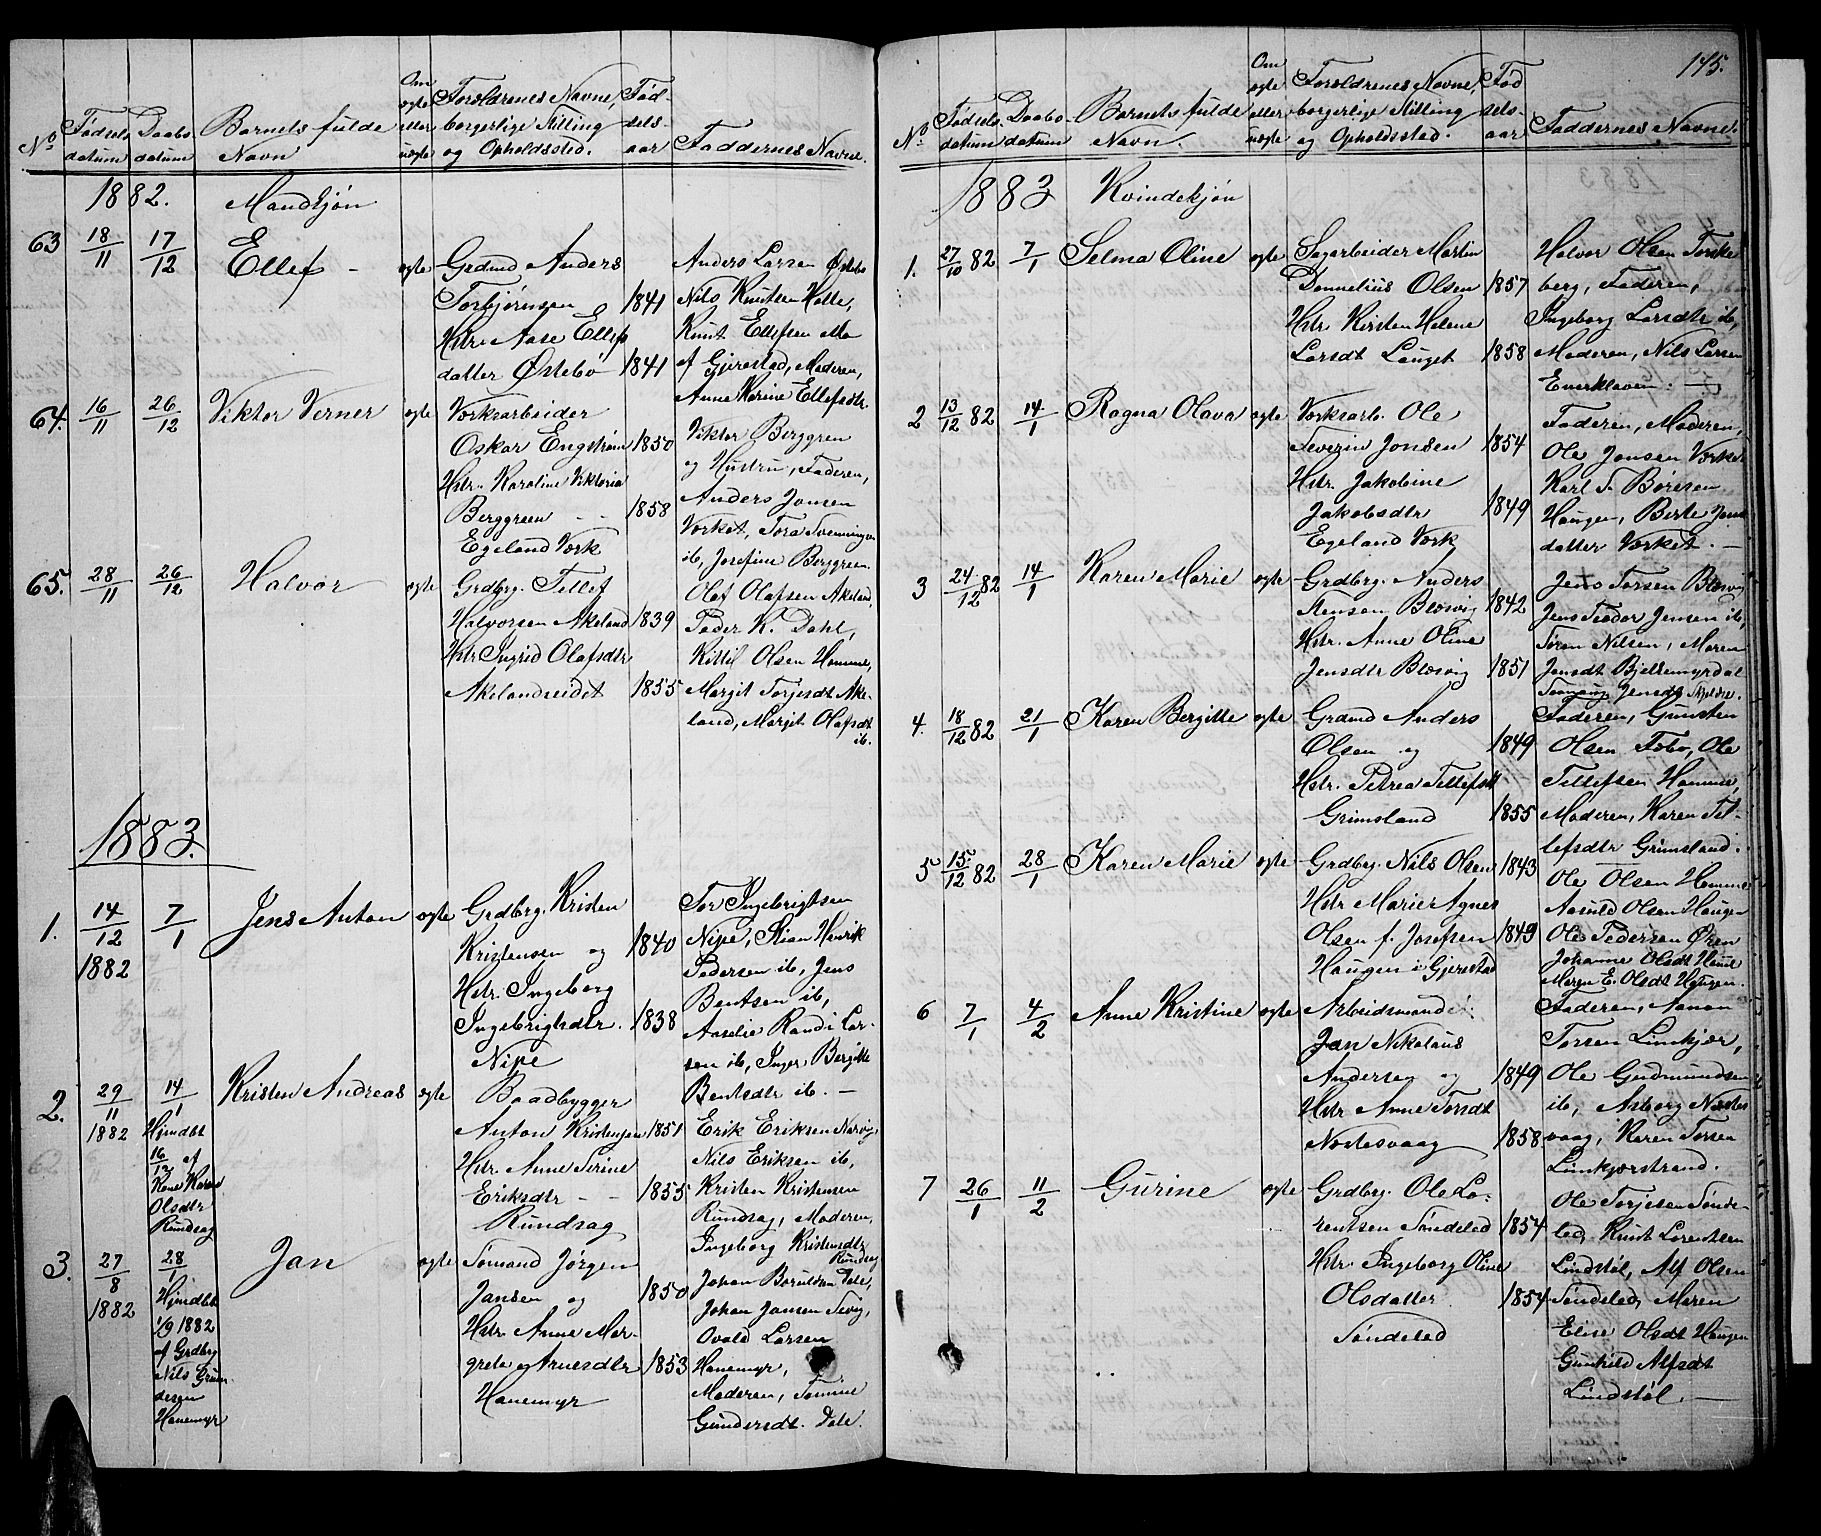 No
Fødsels
datum
Daabs-
datum
Barnets fulde
Navn
Om
ægte
eller
uægte
Forældrenes Navne,
borgerlige Stilling
og Opholdssted.
Fød-
sels-
aar
Faddernes Navne.
1882. Mandkjøn
63 18/11 17/12 Ellef - ægte
Grdmd Anders
Torbjørnsen 1841
Hstr. Aase Ellefs
datter Østebø 1841
Anders Larsen Østebø
Nils Knutsen Holte,
Knut Ellefsen Mo
af Gjerestad, Moderen,
Anne Karine Ellefsdtr.
64. 16/11 26/12 Viktor Verner ægte
Værksarbeider
Oskar Engstrøm 1850
Hstr. Karoline Viktoria
Berggreen - - 1858
Egeland Værk
Viktor Berggren
og Hustru, Faderen,
Anders Jonsen
Værket, Tora Svenningsen
ib, Josefine Berggreen
65. 28/11 26/12 Halvor ægte
Grdbrg. Tellef
Halvorsen Akeland 1839
Hstr Ingrid Olafsdtr
Akelandseidet 1855
Olaf Olafsen Akeland,
Peder K. Dahl,
Kittil Olsen Homme,
Margit Torjesdt Ake-
land, Margit Olafsdt
ib.
1883.
1. 14/12 1882 7/1 Jens Anton ægte
Grdbrg. Kristen
Kristensen og 1840
Hstr. Ingeborg
Ingebrigtsdtr. 1838
Nipe
Tor Ingebrigtsen
Nipe, Stian Henrik
Pedersen ib, Jens
Bentsen ib,
Aaselie Randi Lar-
sen ib, Inger Bergitte
Bentsdtr ib. —
2. 29/11 1882 14/1 Kristen Andreas ægte
Hjmdbt
16/12 af
Kone Karen
Olsdtr
Rundsag
Baadbygger
Anton Kristensen 1851
Hstr. Anne Serine
Eriksdtr - - 1855
Rundsag
Erik Eriksen Narvig
Nils Eriksen ib,
Kristen Kristensen
Rundsag, Moderen,
Ingeborg Kristensdtr
Rundsag
3. 27/8 1882 28/1 Jan ægte
Hjmdbt
1/9 1882
af Grdbrg
Nils Gun-
dersen
Hanemyr
Sømand Jørgen
Jansen og 1850
Hstr. Anne Mar-
grete Arnesdtr 1853
Hanemyr
Johan Børulsen Dale,
Johan Jansen Sevig,
Ovald Larsen
Hanemyr,
Moderen, Tomine
Gundersdt. Dale.
145.
No
Fødsels
datum
Daabs-
datum
Barnets fulde
Navn.
Om
ægte
eller
uægte
Forældrenes Navne,
borgerlige Stilling
og Opholdssted.
Fød
sels-
aar
Faddernes Navne.
1883 Kvindekjøn
1. 27/10 82 7/1 Selma Oline ægte
Sagarbeider Martin
Donnelius Olsen 1857
Hstr. Kirsten Helene
Larsdt Lauget 1858
Halvor Olsen Torske
berg, Faderen,
Ingeborg Larsdtr ib,
Moderen, Nils Larsen
Enerklaven. —
2 13/12 82 14/1 Ragna Olava ægte
Værksarb. Ole
Severin Jonsen 1854
Hstr. Jakobine
Jakobsdtr 1849
Egeland Værk
Faderen, Moderen,
Ole Jonsen Værket
Karl S. Børesen
Haugen, Berte Jons
datter Værket. —
3 24/12 82 14/1 Karen Marie ægte
Grdbrg. Anders
Stensen Blesvig 1842
Hstr. Anne Oline
Jensdtr Blesvig 1851
Jens Torsen Blesvig
Jens Teodor Jensen ib,
Søren Nilsen, Maren
Jonsdt Bjellemyrdal
4. 18/12 82 21/1 Karen Bergitte ægte
Grdmd Anders
Olsen og 1849
Hstr. Petrea Tellefsdt
Grimsland 1855
Faderen, Gunsten
Olsen Fæbo, Ole
Tellefsen Homme,
Moderen, Karen Tel-
lefsdtr Grimsland.
5 15/12 82 28/1 Karen Marie ægte
Grdbrg. Nils Olsen 1843
Hstr Marie Agnes
Olsen f. Josefsen 1849
Haugen i Gjerestad
Ole Olsen Homme
Aasuld Olsen Haugen
Ole Pedersen Øren
Johanne Olsdt Homme
Maren E. Olsdt Haugen.
6 7/1 4/2 Anne Kristine ægte
Arbeidsmand
Jan Nikolaus
Andersen og 1849
Hstr Anne Torsdt
Nostesvaag 1858
Faderen, Aanon
Torsen Limkjær,
Ole Gudmundsen
ib, Asborg Nostes
vaag, Karen Torsen
Limkjærstrand.
7 26/1 11/2 Gurine ægte
Grdbrg. Ole Lo-
rentsen Søndeled 1854
Hstr. Ingeborg Oline
Olsdatter 1854
Søndeled
Ole Torjesen Sønde-
led, Knut Lorentsen
Lindstøl, Alf Olsen
Søndeled, Maren
Elise Olsdt Haugen
Gunhild Alfsdt
Lindstøl. —